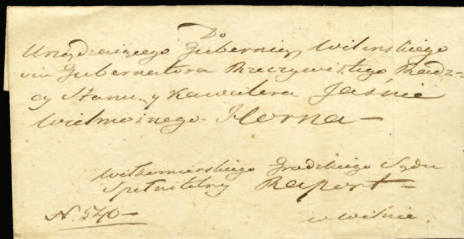 Do
Urządzaiącego Gubernią Wilenskiego
vice Gubernatora Rzeczywistego Radz=
cy Stanu y Kawalera Jasnie
Wielmożnego Horna —
Wilkomierskiego Grodzkiego Sądu
Raport —
N. 540 —
w Wilnie